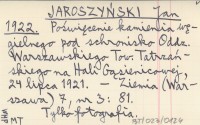 JAROSZYŃSKI Jan
1922. Poświęcenie kamienia wę-
gielnego pod schronisko Oddz.
Warszawskiego Tow. Tatrzań-
skiego na Hali Gąsienicowej,
24 lipca 1921. – Ziemia (War-
szawa) 7, nr 3: 81.
Tylko fotografia.
MT